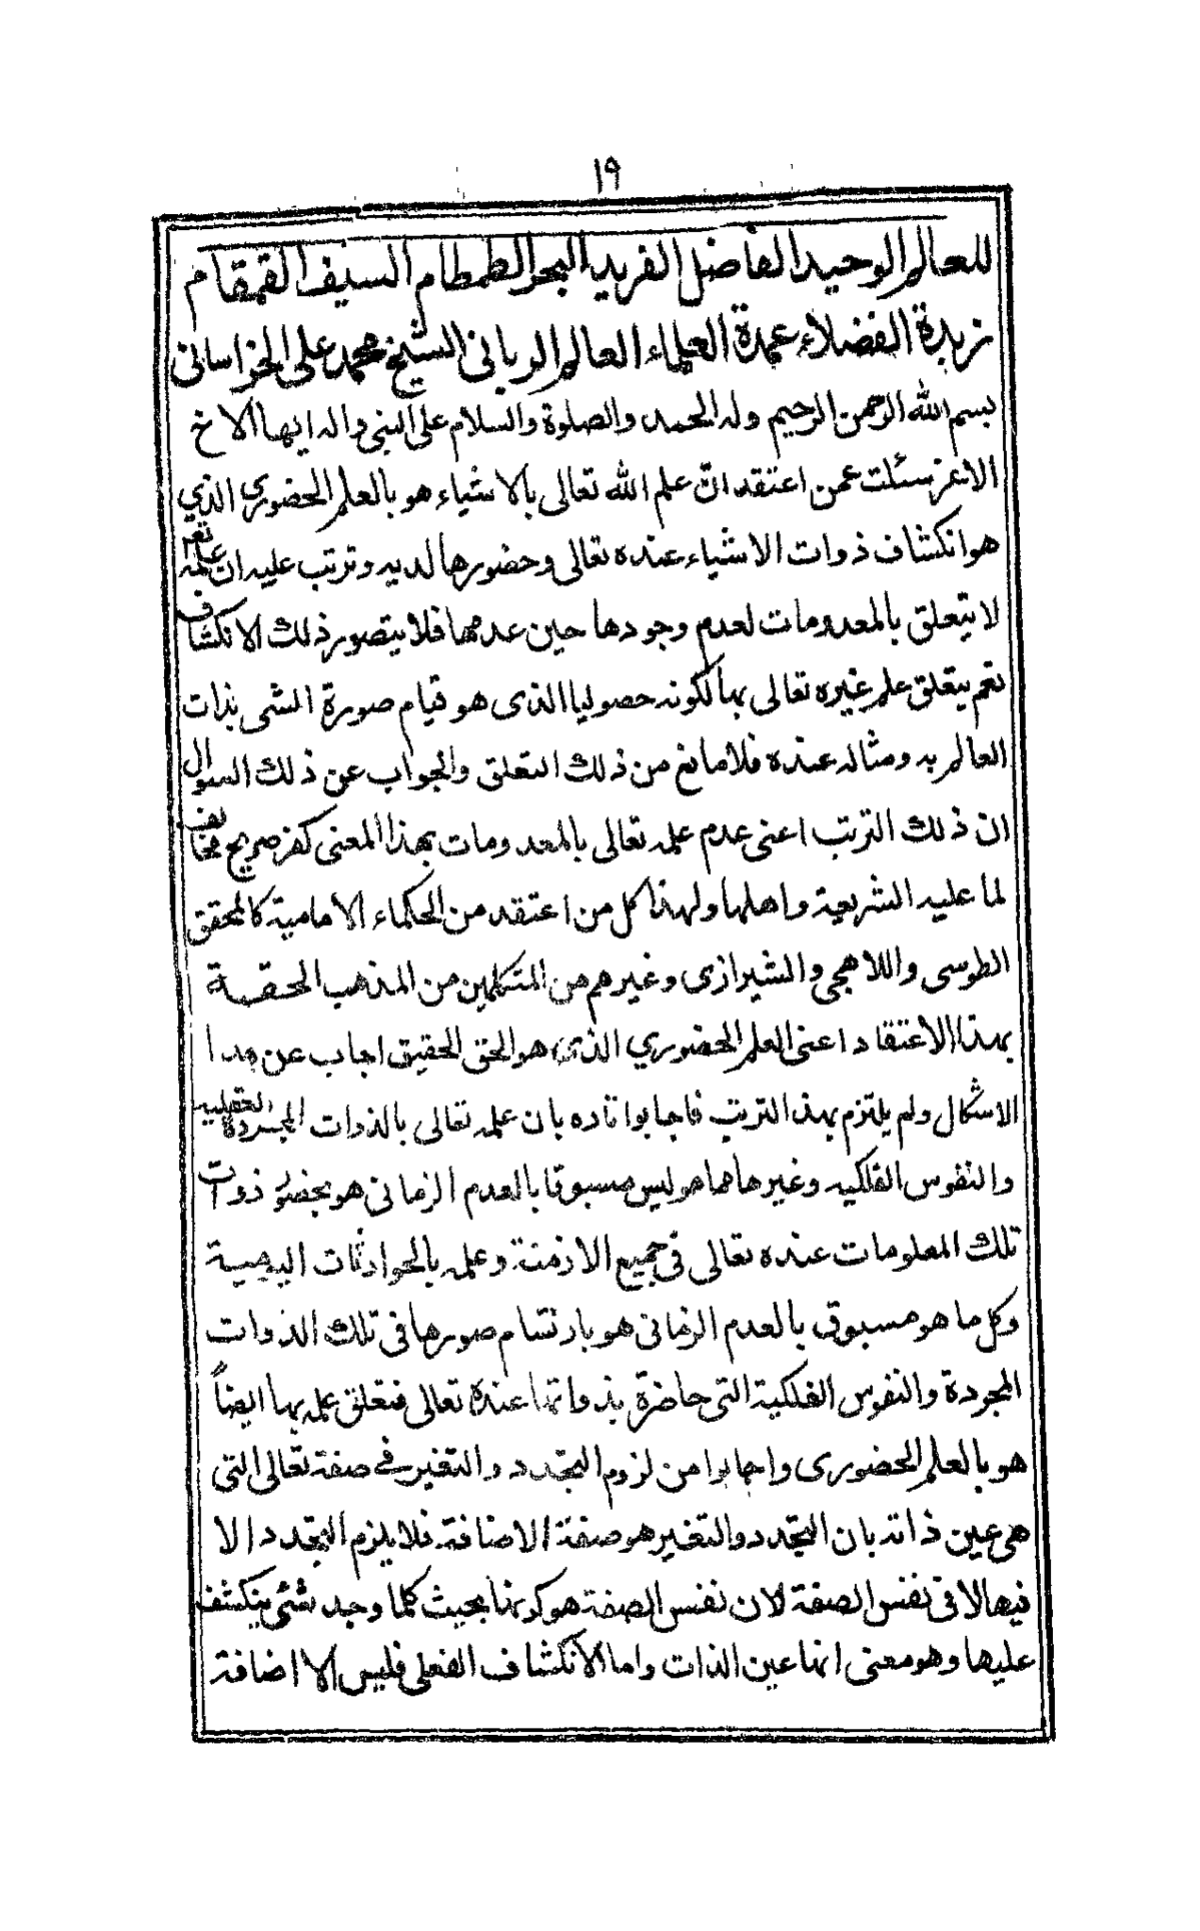 ١٩
للعالم الوحيد الفاضل الفريد البحر الطمطام السيف القمقام
زبدة الفضلاء عمدة العلماء العالم الرباني الشيخ محمد علي الخراساني
بسم الله الرحمن الرحيم وله الحمد والصلوة والسلام على النبي واله ايها الاخ
الاعز سئلت عمن اعتقد انّ علم الله تعالى بالاشياء هو بالعلم الحضوري الذي
هو انكشاف ذوات الاشياء عنده تعالى وحضورها لديه وترتب عليه ان علمه تعم
لا يتعلق بالمعدومات لعدم وجودها حين عدمها فلا يتصور ذلك الانكشاف
نعم يتعلق علم غيره تعالى بها لكونه حصوليا الذى هو قيام صورة الشى بذات
العالم به ومثاله عنده فلا مانع من ذلك التعلق والجواب عن ذلك السوال
ان ذلك الترتب اعنى عدم علمه تعالى بالمعدومات بهذا المعنى كفر صريح مخالف
لما عليه الشريعة واهلها ولهذا كل من اعتقد من الحكماء الامامية كالمحقق
الطوسى واللاهجى والشيرازى وغيرهم من المتكلمين من المذهب الحقية
بهذا الاعتقاد اعنى العلم الحضوري الذى هو الحق الحقيق اجاب عن هذا
الاشكال ولم يلتزم بهذا الترتب فاجابوا تاره بان علمه تعالى بالذوات المجردة العقليه
والنفوس الفلكيه وغيرها مما هو ليس مسبوقا بالعدم الزمانى هو بحضور ذوات
تلك المعلومات عنده تعالى فى جميع الازمنة وعلمه بالحوادثات اليومية
وكل ما هو مسبوق بالعدم الزمانى هو بارتسام صورها فى تلك الذوات
المجردة والنفوس الفلكية التى حاضرة بذواتها عنده تعالى فتعلق علمه بها ايضاً
هو بالعلم الحضورى واجابوا من لزوم التجدد والتغير فى صفة تعالى التى
هى عين ذاته بان التجدد والتغير هو صفة الاضافة فلا يلزم التجدد الا
فيها لا فى نفس الصفة لان نفس الصفة هو كونها بحيث كلما وجد شئى ينكشف
عليها وهو معنى انها عين الذات واما الانكشاف الفعلى فليس الا اضافة